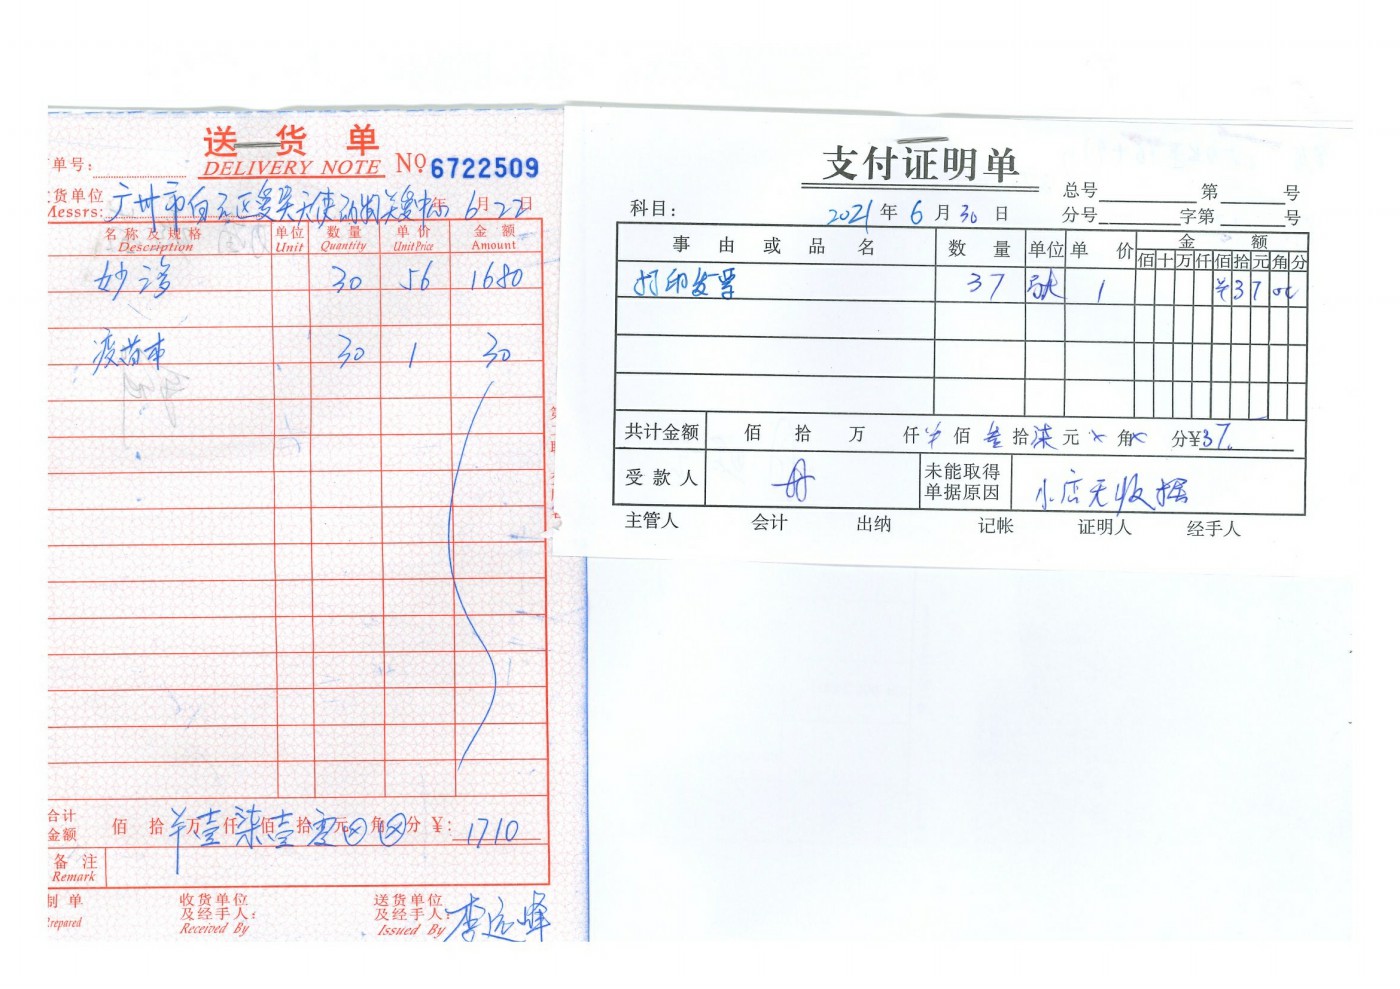 送货单
DELIVERY NOTE
No 6722509
单号:
货货单位 广州市白云区爱天使动物关爱中心 年6月22日
Messrs:
名称及规格 单位 数量 单价 金额
Description Unit Quantity Unit Price Amount
妙三多 30 56 1680
疫苗本 30 1 30
合计金额 佰拾万仟佰拾元角分 ¥: 1710
羊壹柒壹零⊗⊗
备注
Remark
制单 收货单位及经手人: 送货单位及经手人: 李远峰
Prepared Received By Issued By
支付证明单
总号 第 号
科目: 2021年6月30日 分号 字第 号
事由或品名 数量 单位 单价 金额
佰十万仟佰拾元角分
打印发票 37 张 1 ¥3700
共计金额 佰拾万仟¥佰叁拾柒元×角×分¥37.
受款人 未能取得单据原因 小店无收据
主管人 会计 出纳 记帐 证明人 经手人